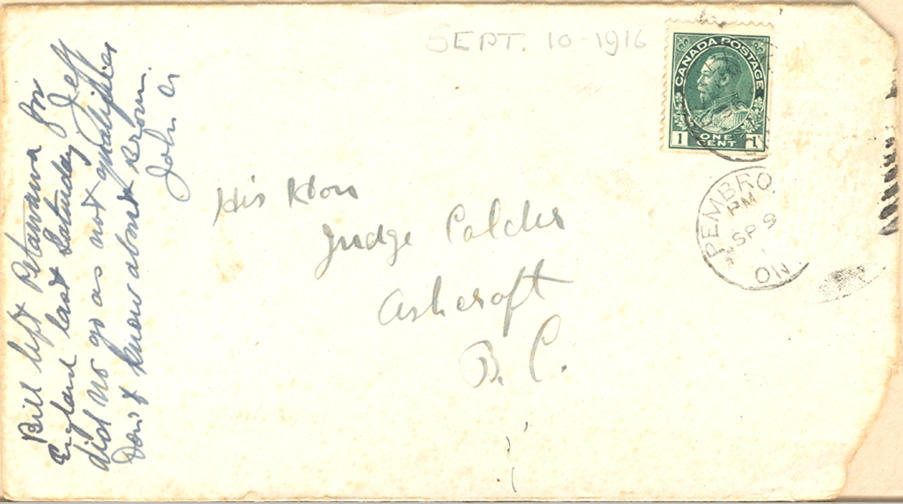 SEPT. 10-1916
CANADA POSTAGE
1 ONE CENT 1
PEMBRO
PM
SP 9
1
ON
His Hon
Judge Calder
Ashcroft
B.C.
Bill left Petawawa for
England last Saturday Jeff
did no go as not qualified
Don't know about Brown.
John